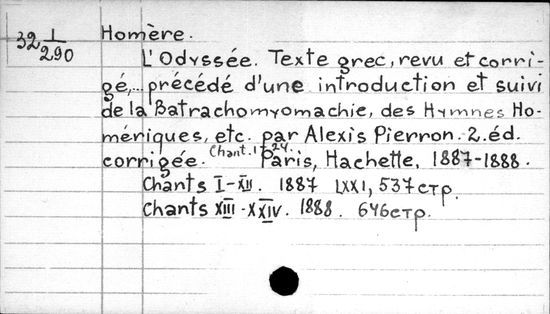 32 1/290
Homère.
L'Odyssée. Texte grec, revu et corri-
gé,... précédé d'une introduction et suivi
de la Batrachomyomachie, des Hymnes Ho-
mériques, etc. par Alexis Pierron. 2. éd.
corrigée. Chant. 1-24. Paris, Hachette, 1887-1888.
Chants I-XII. 1887 LXXI, 537 стр.
Chants XIII-XXIV. 1888. 646 стр.